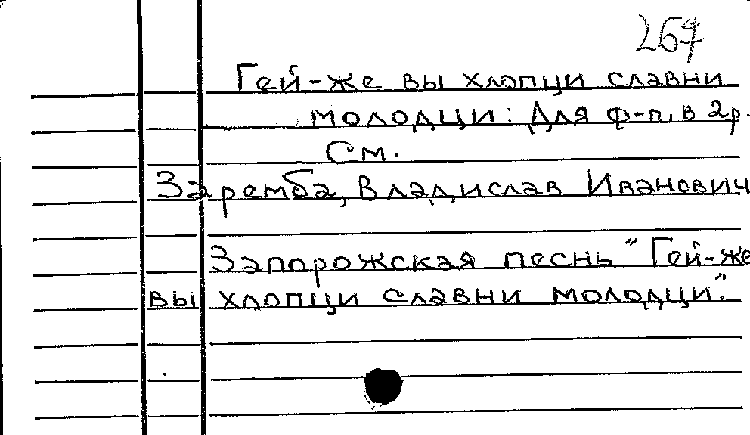 267
Гей-же вы хлопци славни
молодци: Для ф-п. в 2р.
См.
Заремба, Владислав Иванович
Запорожская песнь "Гей-же
вы хлопци славни молодци".